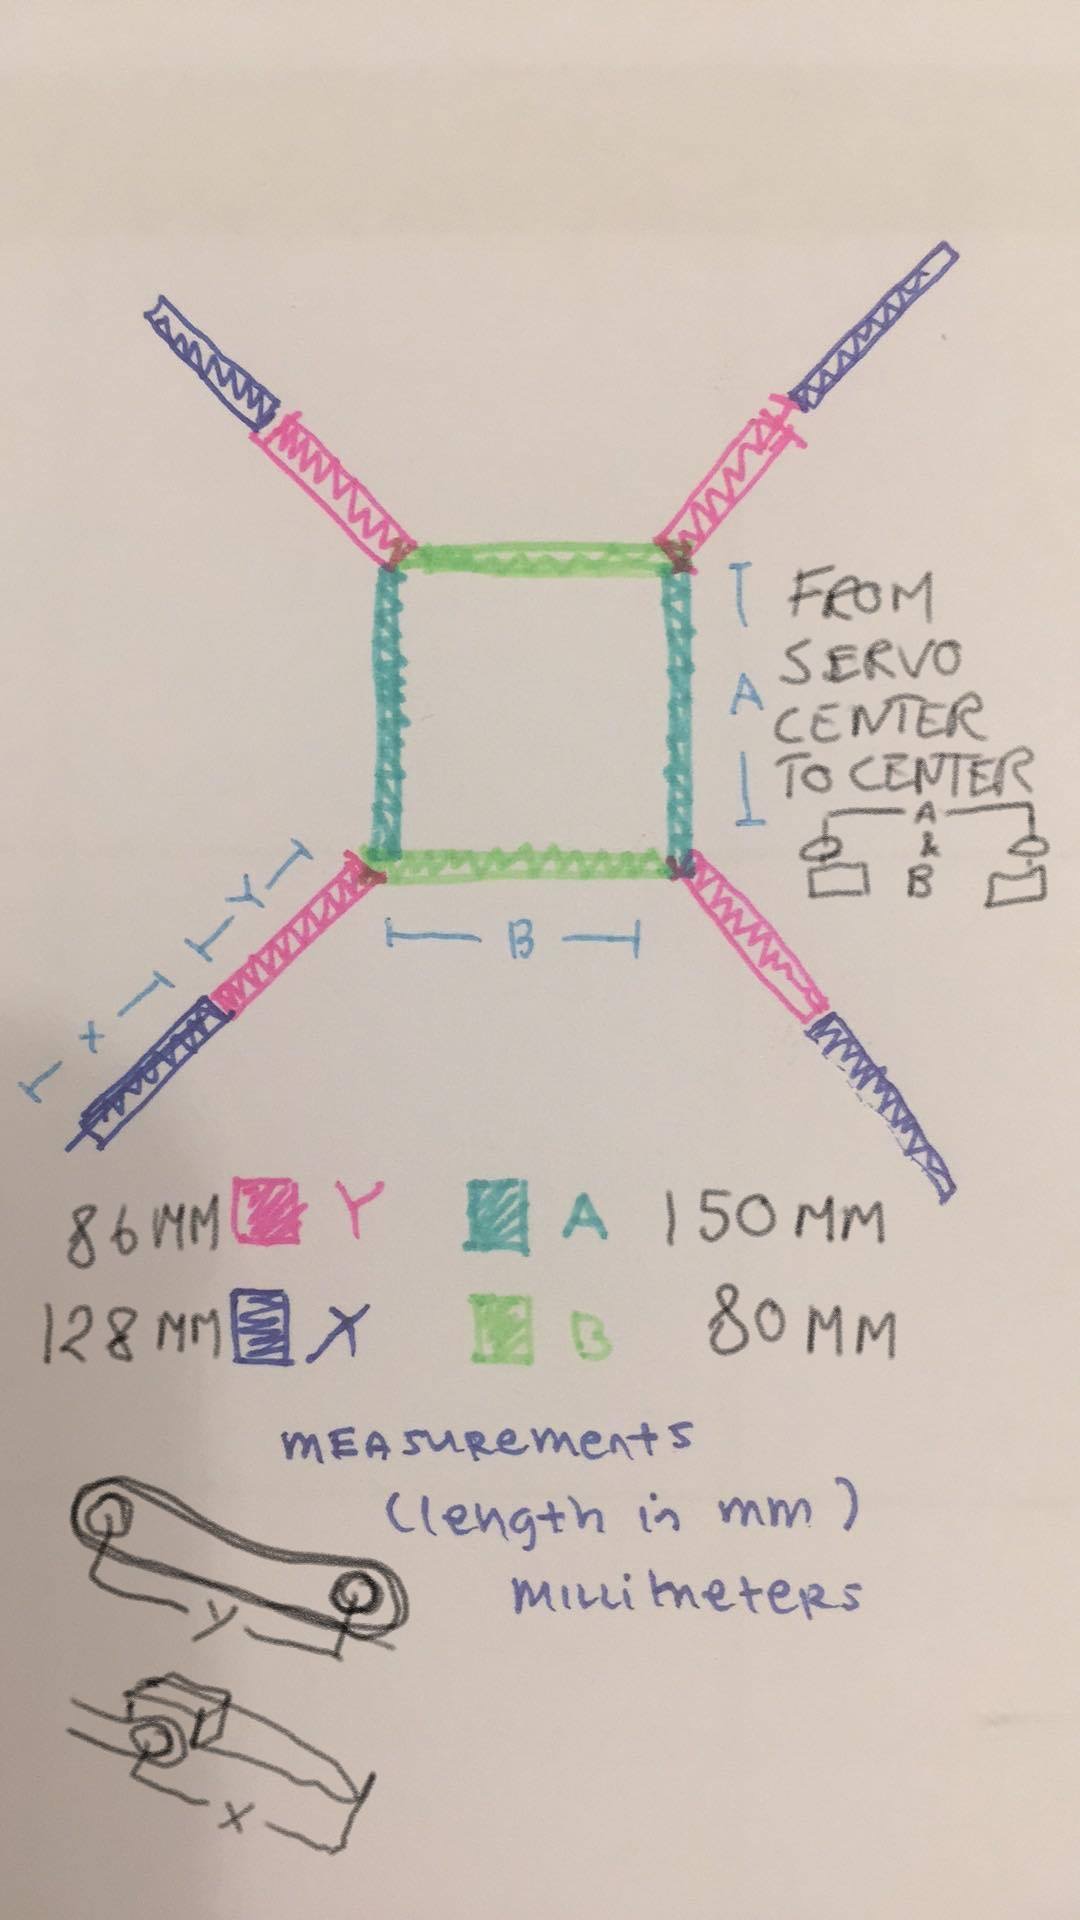 FROM
SERVO
CENTER
TO CENTER
A
A
&
B
Y
B
X
86 MM Y A 150 MM
128 MM X B 80 MM
MEASUREMENTS
(length in mm)
MILLIMETERS
Y
X